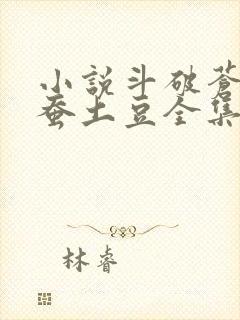 小說斗破蒼
蚕土豆全集
林睿